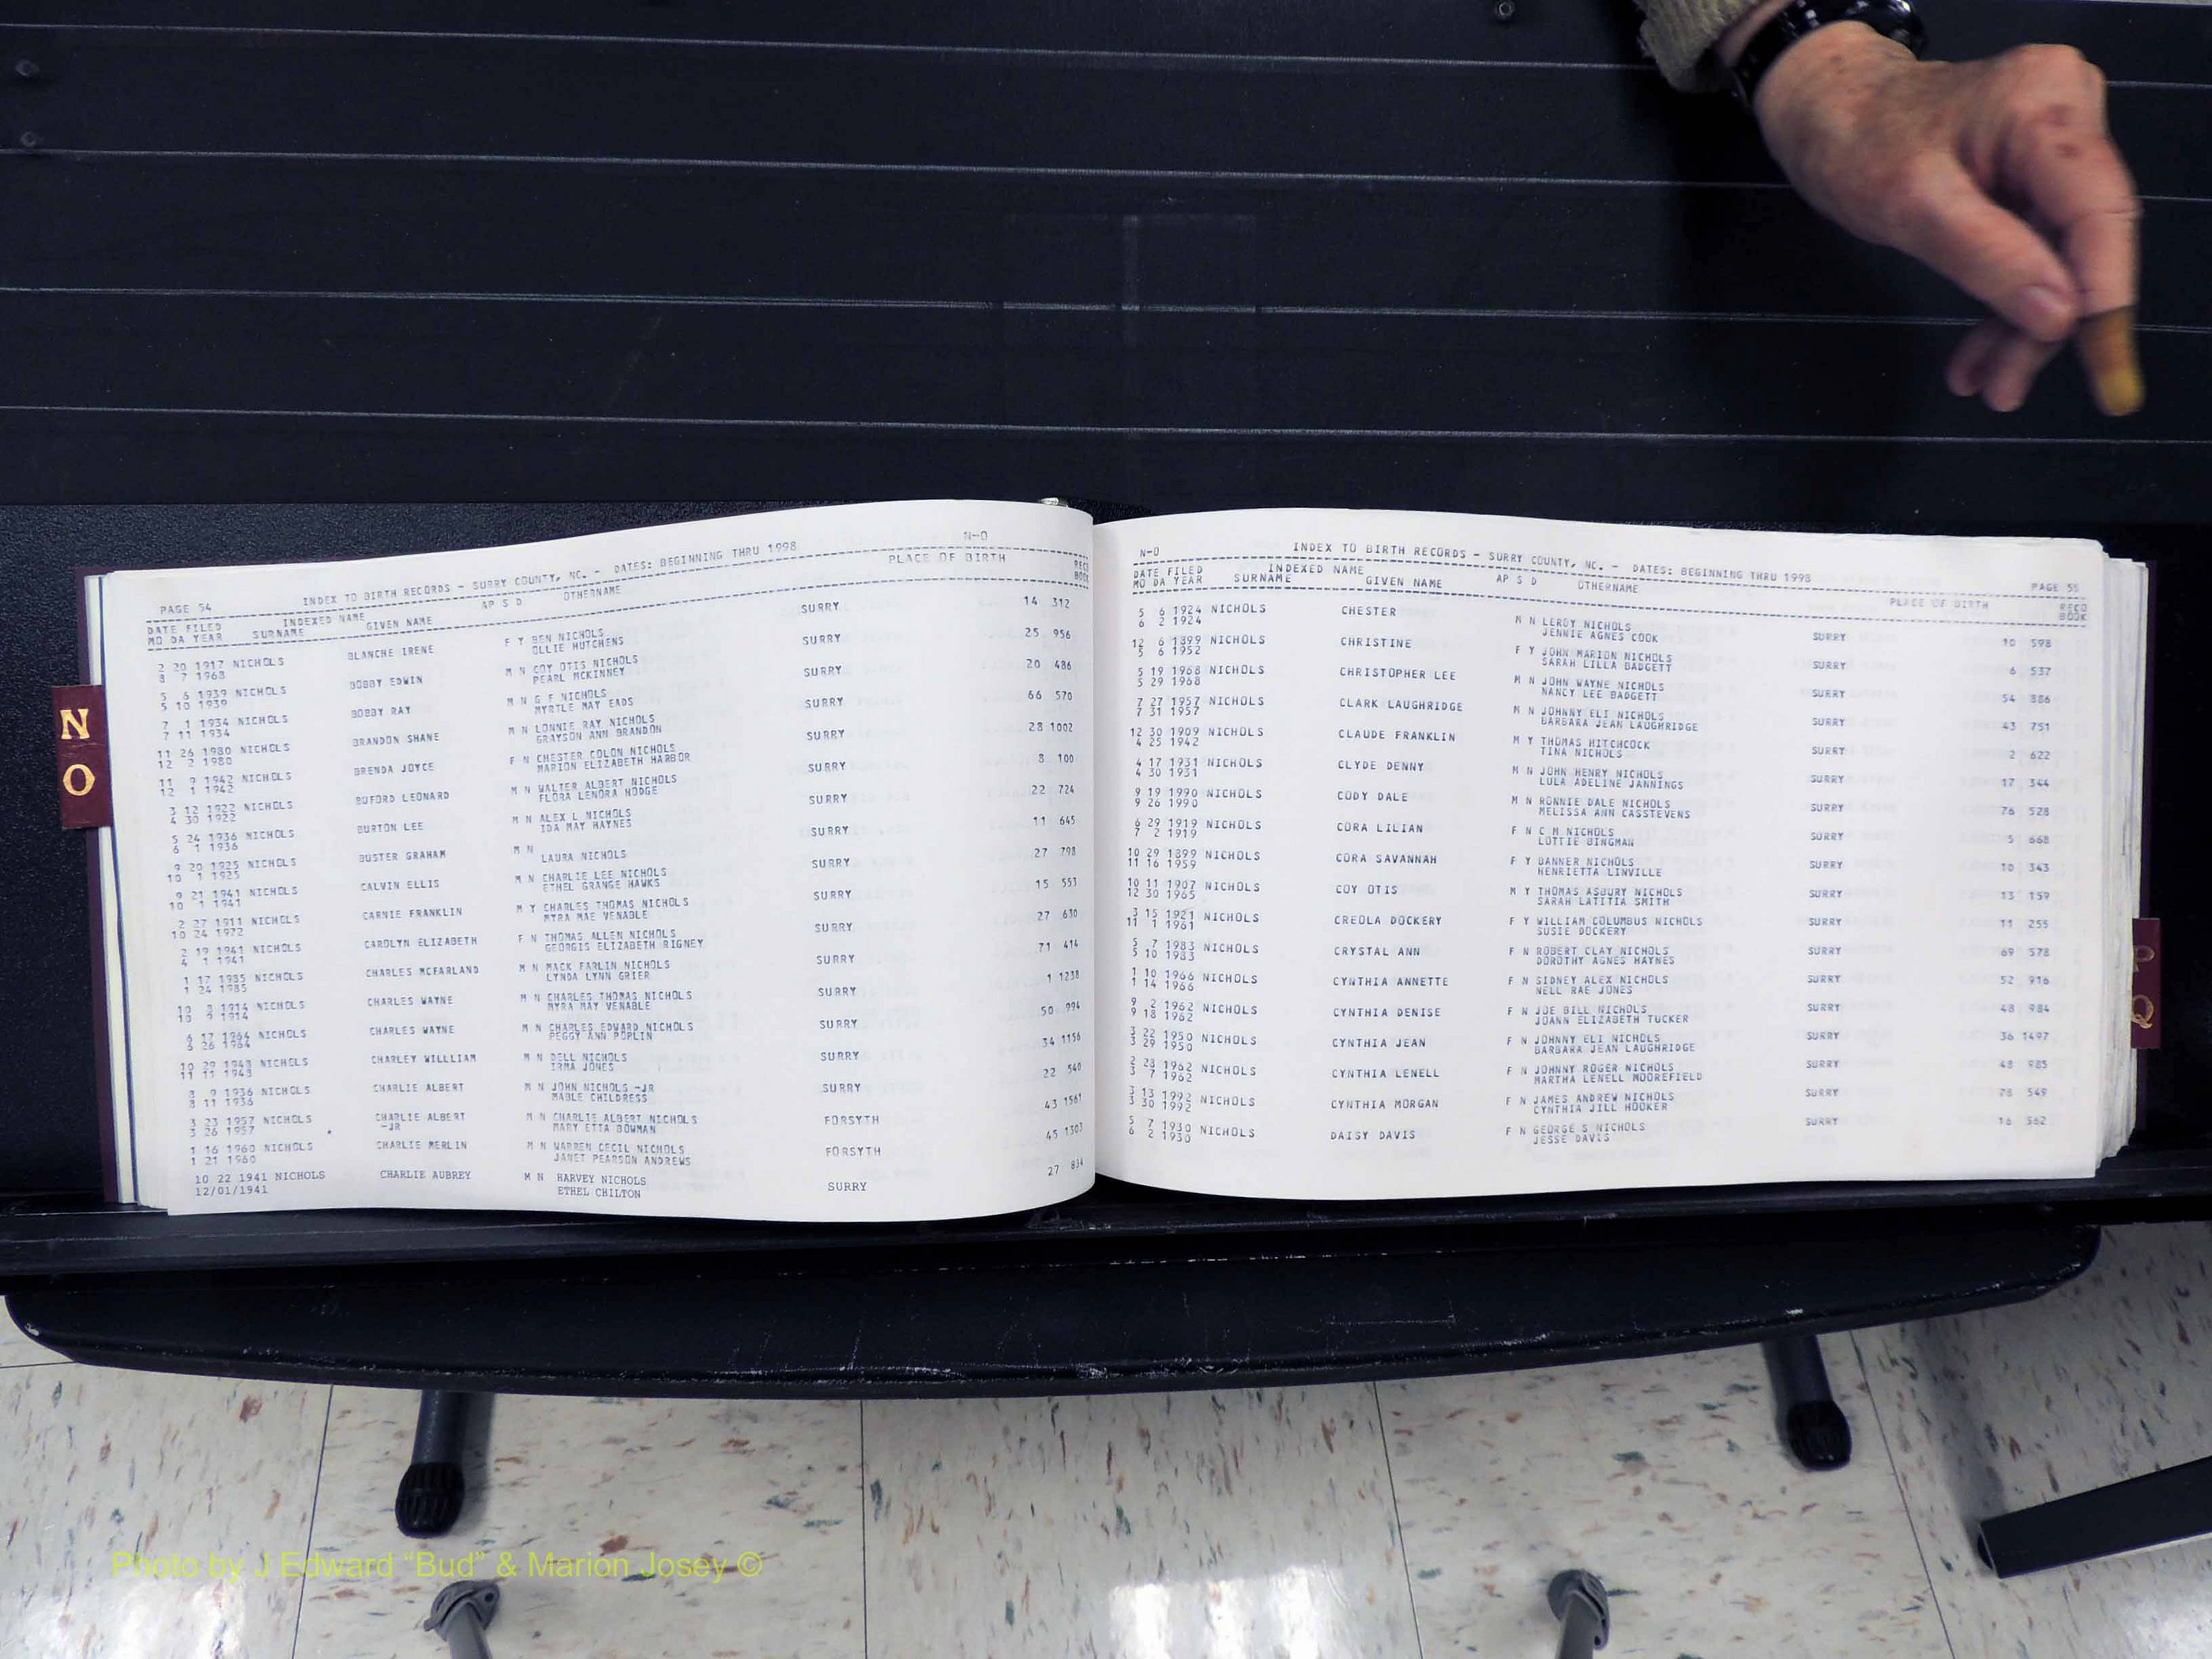 N-O
PAGE 54 INDEX TO BIRTH RECORDS - SURRY COUNTY, NC. - DATES: BEGINNING THRU 1998
DATE FILED INDEXED NAME AP S D OTHERNAME PLACE OF BIRTH RECO
MO DA YEAR SURNAME GIVEN NAME BOOK
2 20 1917 NICHOLS BLANCHE IRENE F Y BEN NICHOLS SURRY 14 312
8 7 1968 OLLIE HUTCHENS
5 6 1939 NICHOLS BOBBY EDWIN M N COY OTIS NICHOLS SURRY 25 956
5 10 1939 PEARL MCKINNEY
7 1 1934 NICHOLS BOBBY RAY M N G F NICHOLS SURRY 20 486
7 11 1934 MYRTLE MAY EADS
11 26 1980 NICHOLS BRANDON SHANE M N LONNIE RAY NICHOLS SURRY 66 570
12 2 1980 GRAYSON ANN BRANDON
11 9 1942 NICHOLS BRENDA JOYCE F N CHESTER COLON NICHOLS SURRY 28 1002
12 1 1942 MARION ELIZABETH HARBOR
3 12 1922 NICHOLS BUFORD LEONARD M N WALTER ALBERT NICHOLS SURRY 8 100
4 30 1922 FLORA LENORA HODGE
5 24 1936 NICHOLS BURTON LEE M N ALEX L NICHOLS SURRY 22 724
6 1 1936 IDA MAY HAYNES
9 20 1925 NICHOLS BUSTER GRAHAM M N SURRY 11 645
10 1 1925 LAURA NICHOLS
9 21 1941 NICHOLS CALVIN ELLIS M N CHARLIE LEE NICHOLS SURRY 27 798
10 1 1941 ETHEL GRANGE HAWKS
2 27 1911 NICHOLS CARNIE FRANKLIN M Y CHARLES THOMAS NICHOLS SURRY 15 553
10 24 1972 MYRA MAE VENABLE
2 19 1941 NICHOLS CAROLYN ELIZABETH F N THOMAS ALLEN NICHOLS SURRY 27 630
4 1 1941 GEORGIS ELIZABETH RIGNEY
1 17 1985 NICHOLS CHARLES MCFARLAND M N MACK FARLIN NICHOLS SURRY 71 414
1 24 1985 LYNDA LYNN GRIER
10 8 1914 NICHOLS CHARLES WAYNE M N CHARLES THOMAS NICHOLS SURRY 1 1238
10 9 1914 MYRA MAY VENABLE
6 17 1964 NICHOLS CHARLES WAYNE M N CHARLES EDWARD NICHOLS SURRY 50 994
6 26 1964 PEGGY ANN POPLIN
10 29 1948 NICHOLS CHARLEY WILLLIAM M N DELL NICHOLS SURRY 34 1156
11 11 1948 IRMA JONES
8 9 1936 NICHOLS CHARLIE ALBERT M N JOHN NICHOLS -JR SURRY 22 540
8 11 1936 MABLE CHILDRESS
3 23 1957 NICHOLS CHARLIE ALBERT M N CHARLIE ALBERT NICHOLS FORSYTH 43 1561
3 26 1957 -JR MARY ETTA BOWMAN
1 16 1960 NICHOLS CHARLIE MERLIN M N WARREN CECIL NICHOLS FORSYTH 45 1303
1 21 1960 JANET PEARSON ANDREWS
10 22 1941 NICHOLS CHARLIE AUBREY M N HARVEY NICHOLS SURRY 27 834
12/01/1941 ETHEL CHILTON
N
O
N-O INDEX TO BIRTH RECORDS - SURRY COUNTY, NC. - DATES: BEGINNING THRU 1998 PAGE 55
DATE FILED INDEXED NAME AP S D OTHERNAME PLACE OF BIRTH RECO
MO DA YEAR SURNAME GIVEN NAME BOOK
5 6 1924 NICHOLS CHESTER M N LEROY NICHOLS SURRY 10 598
6 2 1924 JENNIE AGNES COOK
12 6 1899 NICHOLS CHRISTINE F Y JOHN MARION NICHOLS SURRY 6 537
5 6 1952 SARAH LILLA BADGETT
5 19 1968 NICHOLS CHRISTOPHER LEE M N JOHN WAYNE NICHOLS SURRY 54 386
5 29 1968 NANCY LEE BADGETT
7 27 1957 NICHOLS CLARK LAUGHRIDGE M N JOHNNY ELI NICHOLS SURRY 43 751
7 31 1957 BARBARA JEAN LAUGHRIDGE
12 30 1909 NICHOLS CLAUDE FRANKLIN M Y THOMAS HITCHCOCK SURRY 2 622
4 25 1942 TINA NICHOLS
4 17 1931 NICHOLS CLYDE DENNY M N JOHN HENRY NICHOLS SURRY 17 344
4 30 1931 LULA ADELINE JANNINGS
9 19 1990 NICHOLS CODY DALE M N RONNIE DALE NICHOLS SURRY 76 528
9 26 1990 MELISSA ANN CASSTEVENS
6 29 1919 NICHOLS CORA LILIAN F N C M NICHOLS SURRY 5 668
7 2 1919 LOTTIE BINGMAN
10 29 1899 NICHOLS CORA SAVANNAH F Y BANNER NICHOLS SURRY 10 343
11 16 1959 HENRIETTA LINVILLE
10 11 1907 NICHOLS COY OTIS M Y THOMAS ASBURY NICHOLS SURRY 13 159
12 30 1965 SARAH LATITIA SMITH
3 15 1921 NICHOLS CREOLA DOCKERY F Y WILLIAM COLUMBUS NICHOLS SURRY 11 255
11 1 1961 SUSIE DOCKERY
5 7 1983 NICHOLS CRYSTAL ANN F N ROBERT CLAY NICHOLS SURRY 69 578
5 10 1983 DOROTHY AGNES HAYNES
1 10 1966 NICHOLS CYNTHIA ANNETTE F N SIDNEY ALEX NICHOLS SURRY 52 916
1 14 1966 NELL RAE JONES
9 2 1962 NICHOLS CYNTHIA DENISE F N JOE BILL NICHOLS SURRY 48 984
9 18 1962 JOANN ELIZABETH TUCKER
3 22 1950 NICHOLS CYNTHIA JEAN F N JOHNNY ELI NICHOLS SURRY 36 1497
3 29 1950 BARBARA JEAN LAUGHRIDGE
2 28 1962 NICHOLS CYNTHIA LENELL F N JOHNNY ROGER NICHOLS SURRY 48 985
3 7 1962 MARTHA LENELL MOOREFIELD
3 13 1992 NICHOLS CYNTHIA MORGAN F N JAMES ANDREW NICHOLS SURRY 78 549
3 30 1992 CYNTHIA JILL HOOKER
5 7 1930 NICHOLS DAISY DAVIS F N GEORGE S NICHOLS SURRY 16 562
6 2 1930 JESSE DAVIS
Q
Photo by J Edward “Bud” & Marion Josey ©